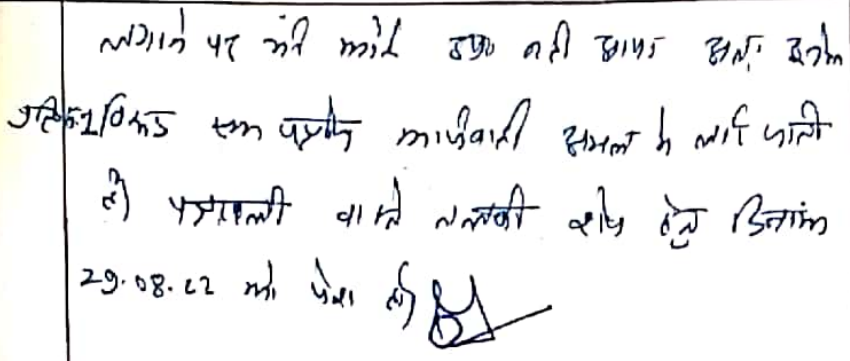 लगाने पर भी कोई उपo नही आया अतः इनके
विरूद्ध एक पक्षीय कार्यवाही अमल मे लाई जाती
है। पत्रावली वास्ते तलबी शेष हेतु दिनांक
29.08.22 को पेश हो।